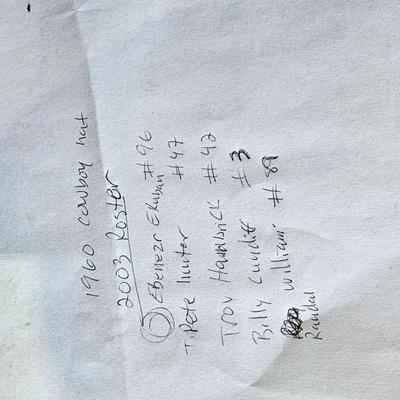 1960 cowboy hat
2003 Roster
Ebenezr Ekuban #96
T. Pete Hunter #47
Troy Hambrick #42
Billy Cundiff #3
William #89
Randal